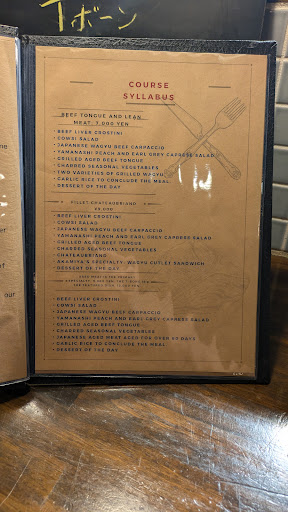 Tボーン
COURSE
SYLLABUS
BEEF TONGUE AND LEAN
MEAT, 7,000 YEN
• BEEF LIVER CROSTINI
• COWSI SALAD
• JAPANESE WAGYU BEEF CARPACCIO
• YAMANASHI PEACH AND EARL GREY CAPRESE SALAD
• GRILLED AGED BEEF TONGUE
• CHARRED SEASONAL VEGETABLES
• TWO VARIETIES OF GRILLED WAGYU
• GARLIC RICE TO CONCLUDE THE MEAL
• DESSERT OF THE DAY
FILLET CHATEAUBRIAND
• BEEF LIVER CROSTINI
• COWSI SALAD
• JAPANESE WAGYU BEEF CARPACCIO
• YAMANASHI PEACH AND EARL GREY CAPRESE SALAD
• GRILLED AGED BEEF TONGUE
• CHARRED SEASONAL VEGETABLES
• CHATEAUBRIAND
SPECIALTY: WAGYU CUTLET SANDWICH
• DESSERT OF THE DAY
• BEEF LIVER CROSTINI
• COWSI SALAD
• JAPANESE WAGYU BEEF CARPACCIO
• YAMANASHI PEACH AND EARL GREY CAPRESE SALAD
• GRILLED AGED BEEF TONGUE
• CHARRED SEASONAL VEGETABLES
• JAPANESE AGED MEAT AGED FOR OVER 40 DAYS
• GARLIC RICE TO CONCLUDE THE MEAL
• DESSERT OF THE DAY